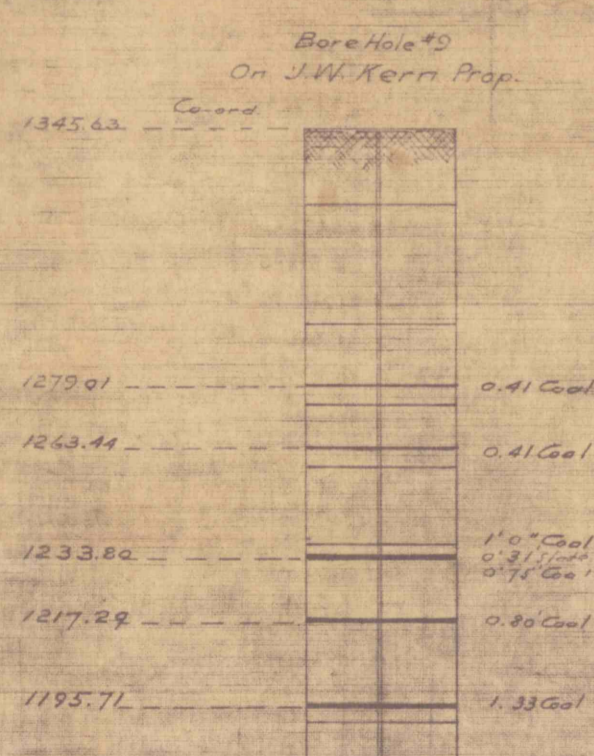 Bore Hole #9
On J.W. Kern Prop.
Co-ord.
1345.63
1279.01
0.41 Coal
1263.44
0.41 Coal
1'0" Coal
1233.80
0'31 Slate
0'75 Coal
1217.29
0.80 Coal
1195.71
1.33 Coal